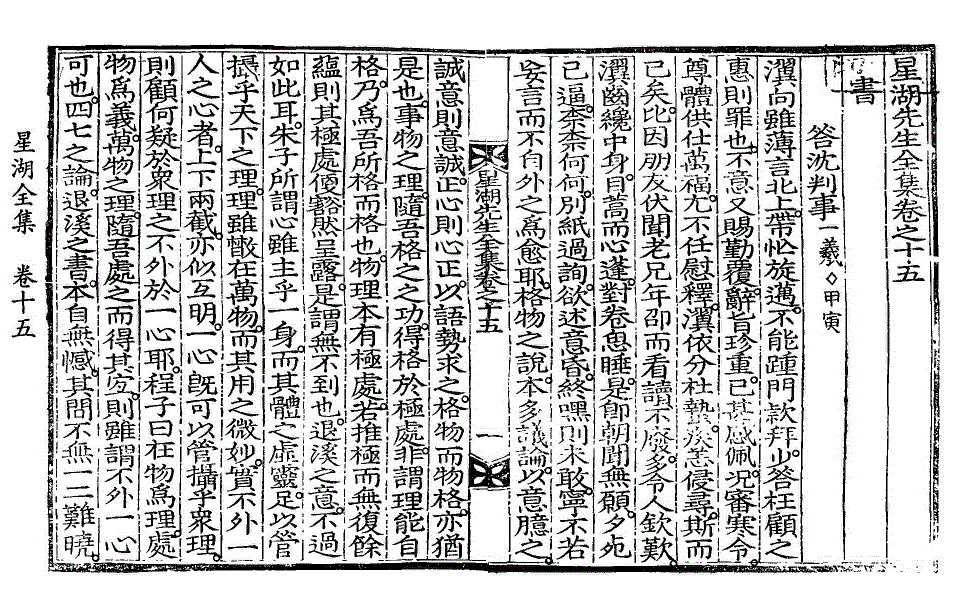 星湖先生全集卷之十五
書
答沈判事一羲 ◇甲寅
瀷向雖薄言北上。帶忙旋邁。不能踵門款拜。少答枉顧之
惠則罪也。不意又賜勤覆。辭旨珍重。已甚感佩。况審寒令
尊體供仕萬福。尤不任慰釋。瀷依分杜蟄。疾恙侵尋。斯而
已矣。比因朋友伏聞老兄年卲而看讀不廢。多令人欽歎。
瀷齒纔中身。目蒿而心蓬。對卷思睡。是卽朝聞無願。夕死
已逼。柰柰何何。別紙過詢。欲述意昏。終嘿則未敢。寧不若
妄言而不自外之爲愈耶。格物之說。本多議論。以意臆之
星湖先生全集卷之十五
一
誠意則意誠。正心則心正。以語勢求之。格物而物格。亦猶
是也。事物之理。隨吾格之之功。得格於極處。非謂理能自
格。乃爲吾所格而格也。物理本有極處。若推極而無復餘
蘊則其極處便豁然呈露。是謂無不到也。退溪之意。不過
如此耳。朱子所謂心雖主乎一身。而其體之虛靈。足以管
攝乎天下之理。理雖散在萬物。而其用之微妙。實不外一
人之心者。上下兩截。亦似互明。一心旣可以管攝乎衆理。
則顧何疑於衆理之不外於一心耶。程子曰在物爲理。處
物爲義。萬物之理。隨吾處之而得其宜。則雖謂不外一心
可也。四七之論。退溪之書。本自無憾。其問不無一二難曉。
星湖全集 卷十五